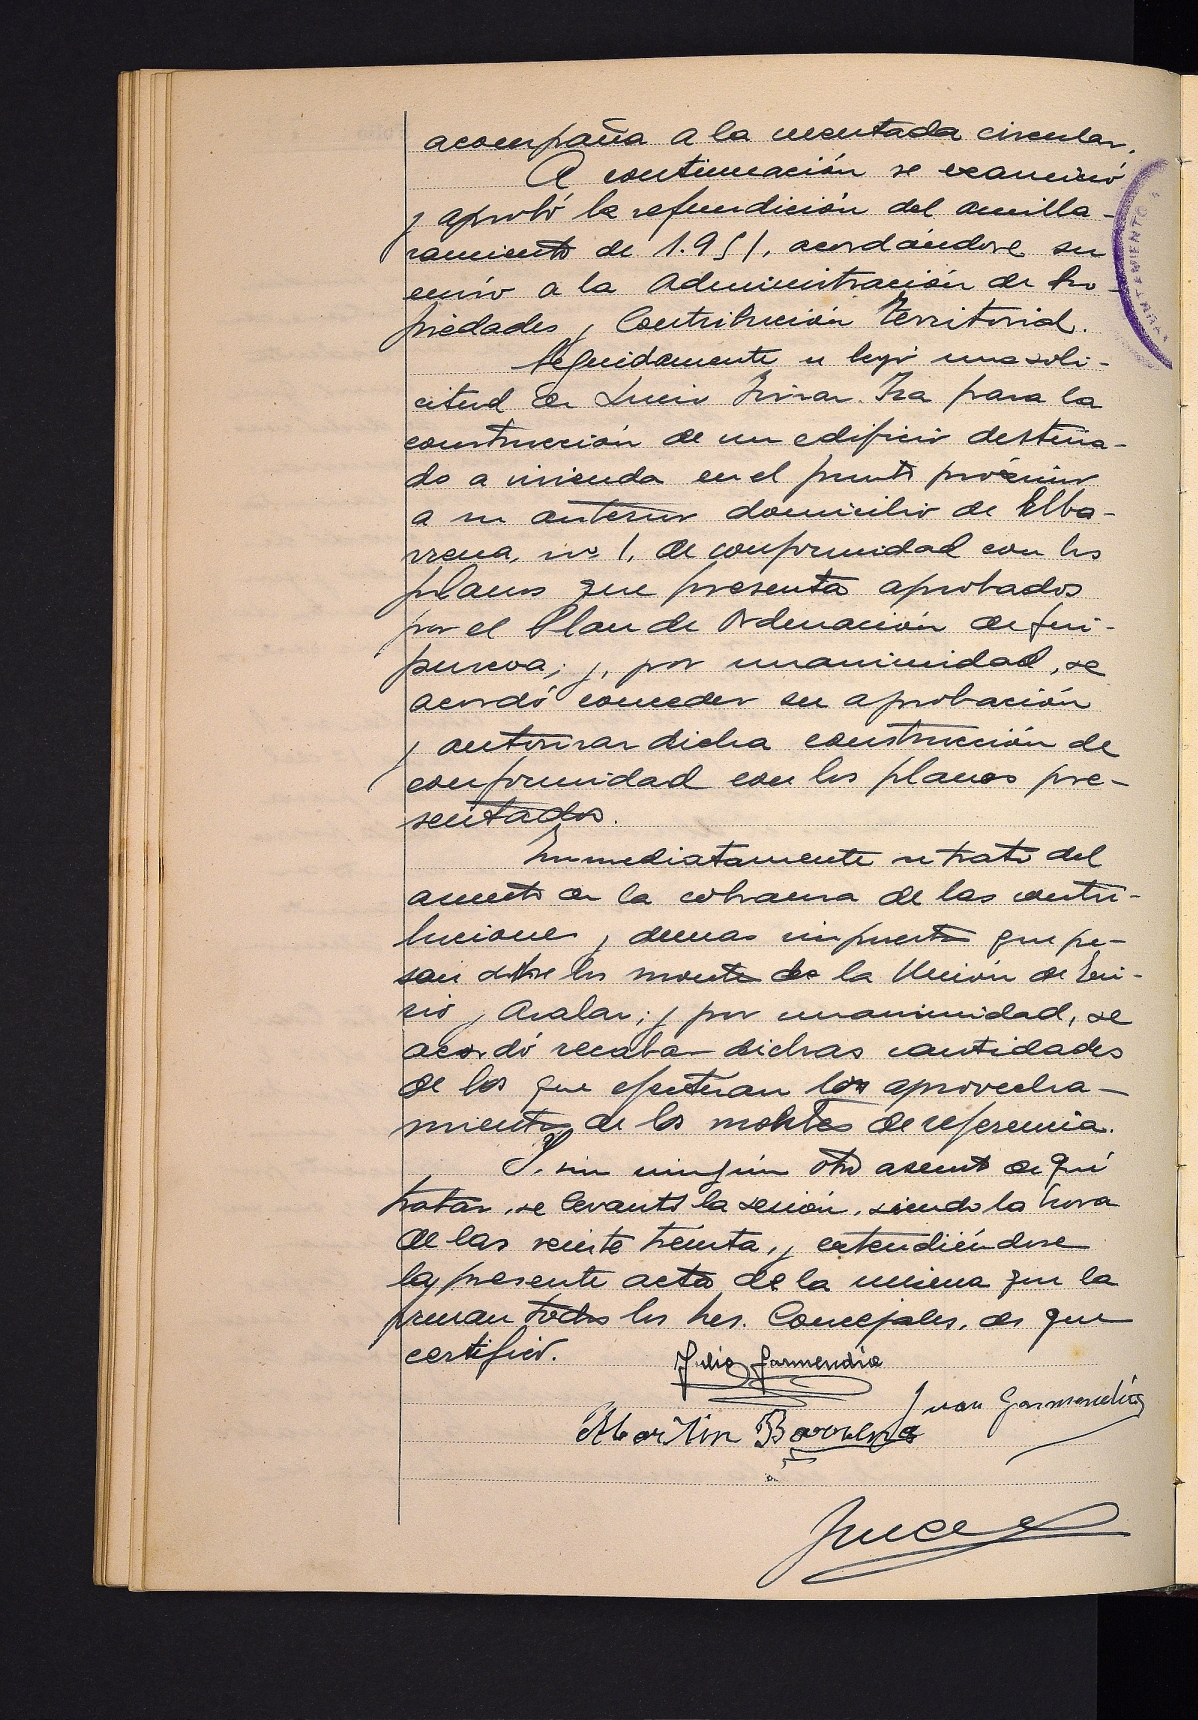 acompaña a la mentada circular.
A continuación se examinó
y aprobó la refundición del amilla-
ramiento de 1.951, acordándose su
envío a la Administración de Pro-
piedades y Contribución Territorial.
Seguidamente se leyó una soli-
citud de Lucio Irizar Iza para la
construcción de un edificio destina-
do a vivienda en el punto próximo
a su anterior domicilio de Elba-
rrena, nº 1, de conformidad con los
planos que presenta aprobados
por el Plan de Ordenación de Gui-
púzcoa; y, por unanimidad, se
acordó conceder su aprobación
y autorizar dicha construcción de
conformidad con los planos pre-
sentados.
Inmediatamente se trató del
asunto de la cobranza de las contri-
buciones y demas impuestos que pe-
san sobre los montes de la Unión de Eni-
rio y Aralar; y por unanimidad, se
acordó recabar dichas cantidades
de los que efectuan los aprovecha-
mientos de los montes de referencia.
Y, sin ningún otro asunto de qué
tratar, se levantó la sesión, siendo la hora
de las veinte treinta, y extendiéndose
la presente acta de la misma que la
firman todos los Sres. Concejales, de que
certifico.
Julio Garmendia
Juan Garmendia
Martin Barrena
AYUNTAMIENTO